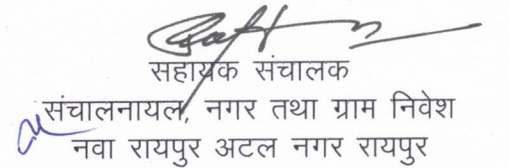 सहायक संचालक
संचालनायल, नगर तथा ग्राम निवेश
नवा रायपुर अटल नगर रायपुर